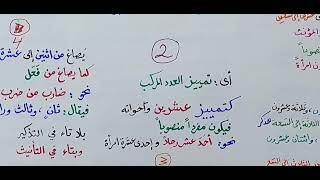 المؤنث
منصوباً
امرأة
وعشرون
الثلاثة إلى التسعة
2
أى: تمييز العدد المركب
كتمييز عشرين وأخواته
فيكون مفرداً منصوباً
نحو: أحد عشر رجلاً وإحدى عشرة امرأة
3
4
يصاغ من اثنين إلى عشرة
كما يصاغ من فعل
نحو: ضارب من ضرب
فيقال: ثانٍ، وثالث
بلا تاء في التذكير
وبتاء في التأنيث